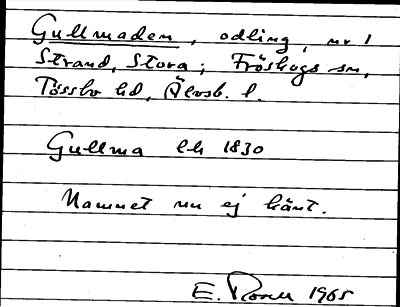 Gullmaden, odling, nr 1
Strand, Stora; Fröskogs sn,
Tössbo hd, Älvsb. l.
Gullma lh 1830
Namnet nu ej känt.
E. Rosell 1965